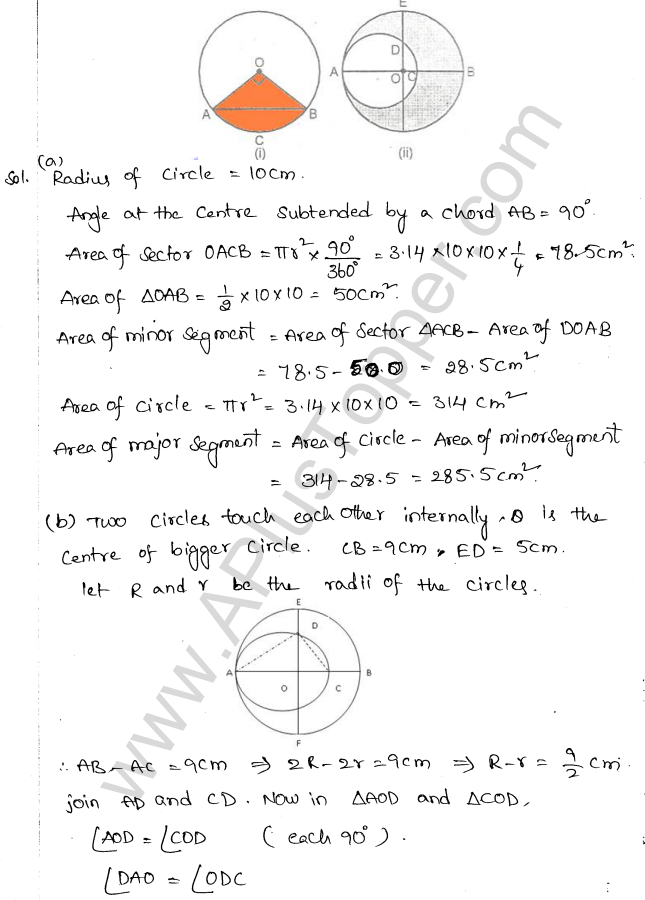 E
D
O
A
O
C
B
A
B
C
(i)
(ii)
(a)
Sol. Radius of circle = 10cm.
Angle at the centre subtended by a chord AB = 90°.
Area of sector OACB = πr² × 90°/360° = 3.14 × 10 × 10 × 1/4 = 78.5cm².
Area of ΔOAB = 1/2 × 10 × 10 = 50cm².
Area of minor segment = Area of sector ΔACB - Area of DOAB
= 78.5 - 50.0 = 28.5cm²
Area of circle = πr² = 3.14 × 10 × 10 = 314 cm²
Area of major segment = Area of circle - Area of minor segment
= 314 - 28.5 = 285.5cm².
(b) Two circles touch each other internally, O is the
centre of bigger circle. CB = 9cm, ED = 5cm.
let R and r be the radii of the circles.
E
D
A
B
O
C
F
∴ AB - AC = 9cm ⇒ 2R - 2r = 9cm ⇒ R - r = 9/2 cm.
join AD and CD. Now in ΔAOD and ΔCOD,
∠AOD = ∠COD (each 90°).
∠DAO = ∠ODC
www.APlusTopper.com